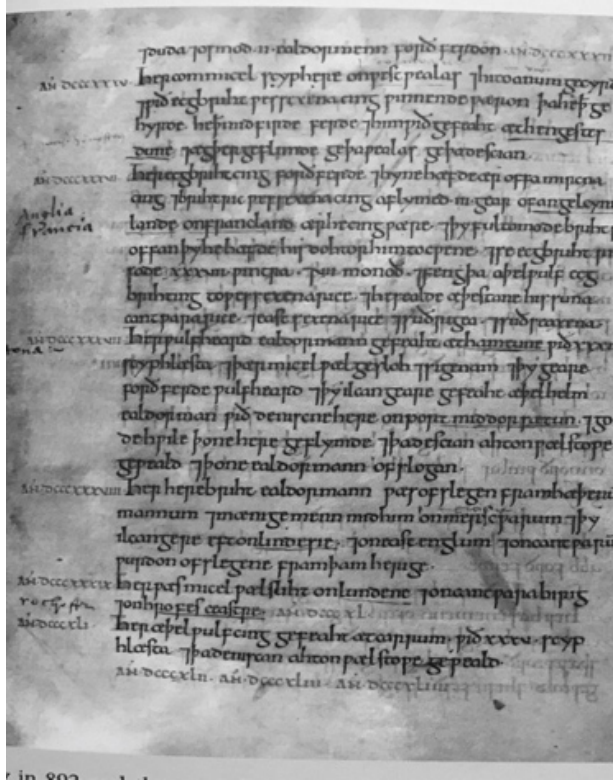 ⁊duda ⁊osmod .ii. ealdormenn forð ferdon. AN DCCCXXXIIII
AÑ DCCCXXXV her com micel scyphere on ƿest ƿealas ⁊hi to anum gecyrd
⁊ƿið ecgbriht ƿessexena cing ƿinnende ƿæron þa he þ ge
hyrde he mid firde ferde ⁊him ƿið gefeaht æt hengester
dune ⁊ægþer geflimde ge þa ƿealas ge þa deniscian.
AÑ DCCCXXXVI her ecgbriht cing forð ferde ⁊hyne hæfde ær offa mircna
cing ⁊brihtric ƿessexena cing aflymed .iii. gear of angelcynn
Anglia
francia
lande on francland ær he cing ƿære ⁊þy fultomode brihtric
offan þy he hæfde his dohtor him to cƿene ⁊se ecgbriht
rode xxxvii ƿintra ⁊vii monoð ⁊feng þa aþelƿulf ecg
brihting to ƿessexena rice ⁊he sealde æþestane his suna
cant ƿara rice ⁊east sexena rice ⁊suðrigea ⁊suð seaxena
AÑ DCCCXXXVII her ƿulfheard ealdormann gefeaht æt hamtune ƿið xxx
scyphlæsta ⁊þær micel ƿæl gesloh ⁊sige nam ⁊þy geare
forð ferde ƿulfheard ⁊þy ilcan geare gefeaht æþelhelm
ealdorman ƿið denircne here on port ⁊go
de hƿile þone here geflymde ⁊þa deniscian ahton ƿælstoƿe
geƿeald ⁊þone ealdormann ofslogan.
AÑ DCCCXXXVIII her herebriht ealdormann ƿæs ofslegen fram hæþenū
mannum ⁊mænige menn mid him on merscƿarium ⁊þy
ilcan gere eft on linderie ⁊on east englum ⁊on cantƿarū
ƿurdon ofslegene fram þam herige.
AÑ DCCCXXXIX her ƿæs micel ƿælsliht on lundene ⁊on cantƿara birig
⁊on hrofes ceastre.
AÑ DCCCXLI her æþelƿulf cing gefeaht æt carrum ƿið xxxv scyp
hlæsta ⁊þa denircan ahton ƿælstoƿe geƿeald.
AÑ DCCCXLII AÑ DCCCXLIII AÑ DCCCXLIIII
in 892